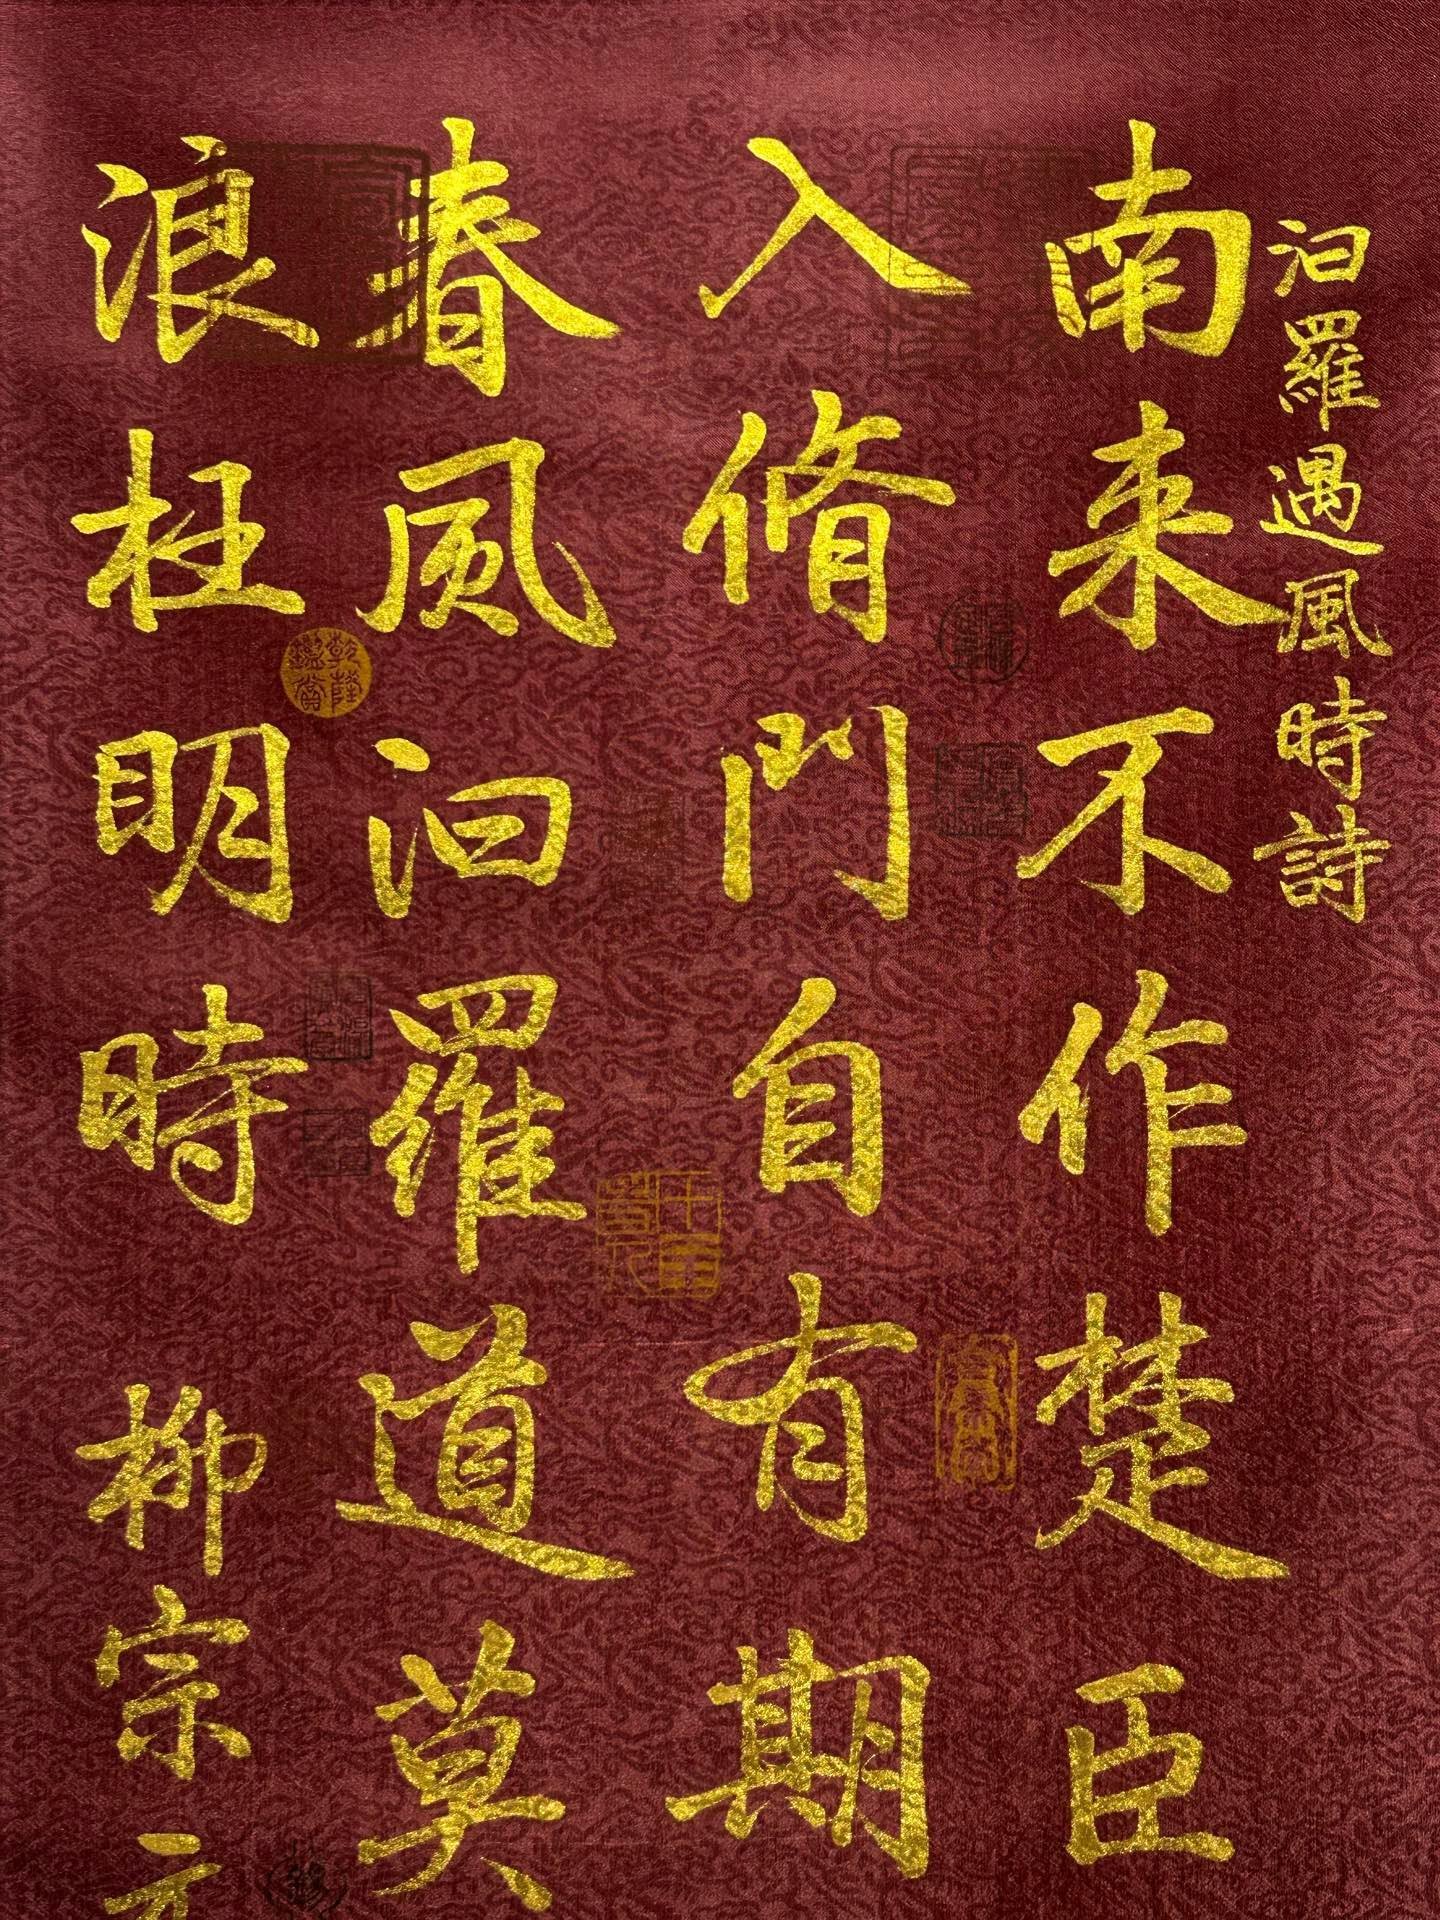 汨羅遇風時詩
南来不作楚臣
入脩門自有期
春風汨羅道莫
浪枉明時 柳宗元
乾隆鑑賞